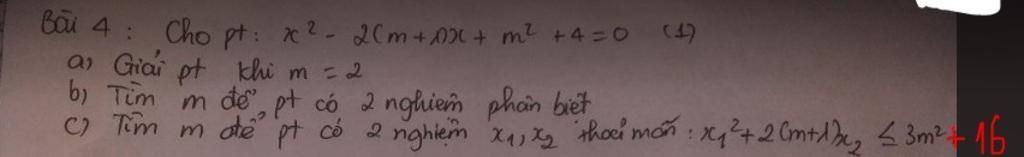 Bài 4 : Cho pt: x² - 2(m+1)x + m² + 4 = 0 (1)
a) Giải pt khi m = 2
b) Tìm m để pt có 2 nghiệm phân biệt
c) Tìm m để pt có 2 nghiệm x₁, x₂ thoả mãn : x₁² + 2(m+1)x₂ ≤ 3m² + 16